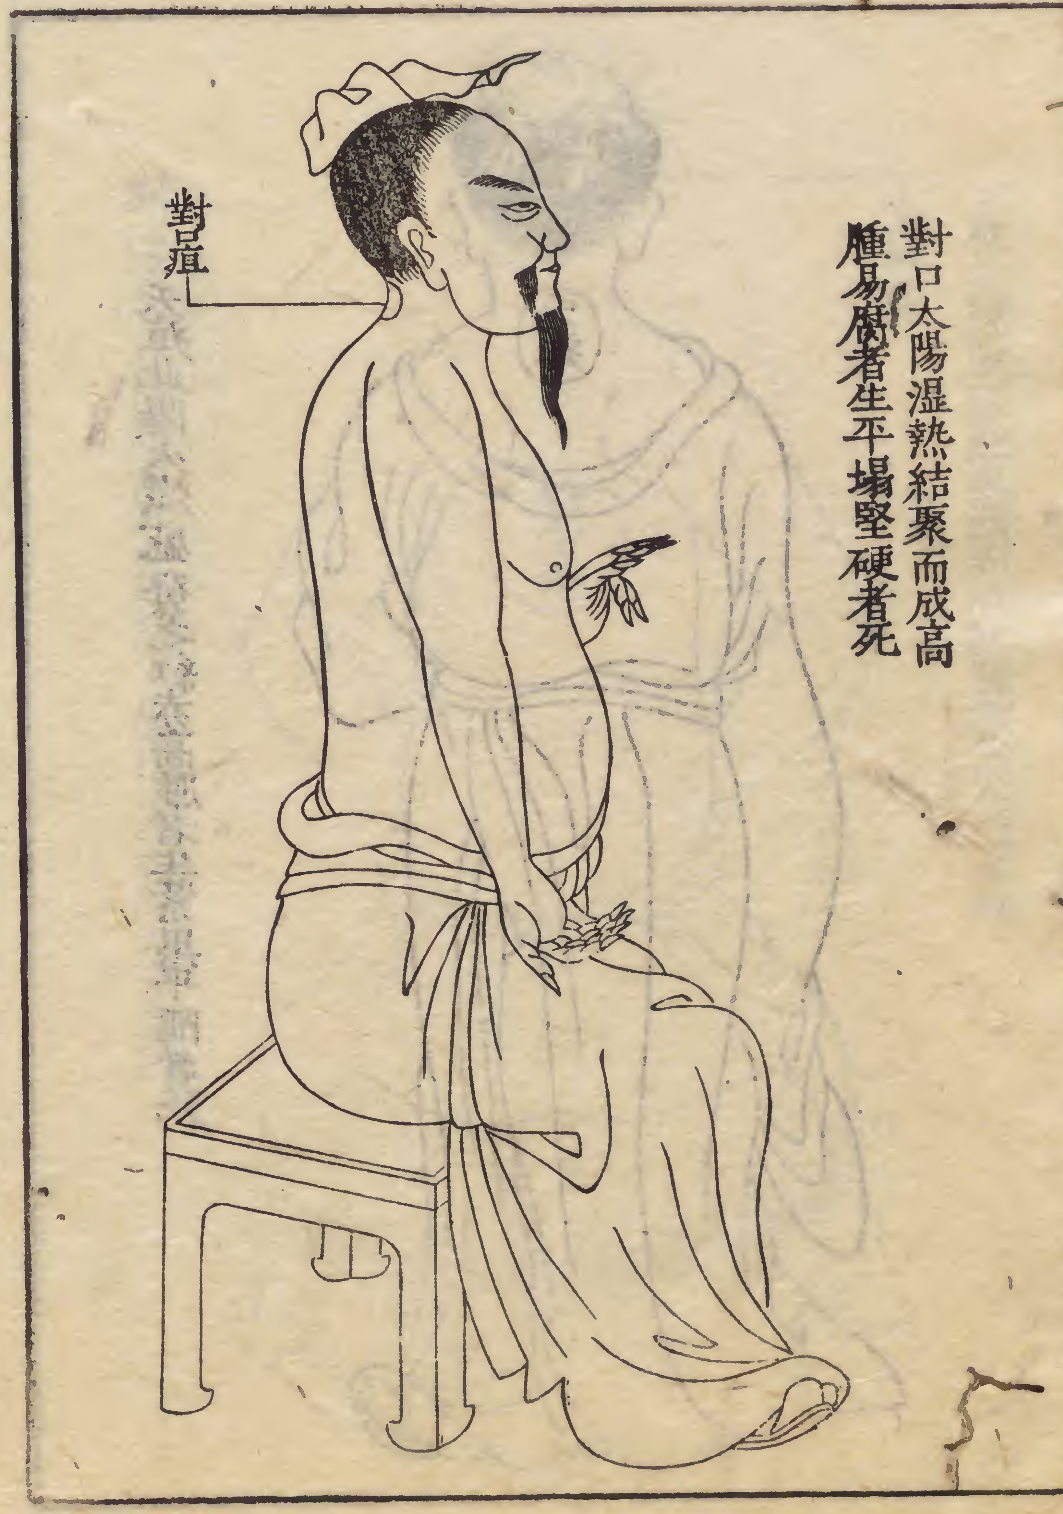 對口太陽湿熱結聚而成高
腫易腐者生平塌堅硬者死
對口疽